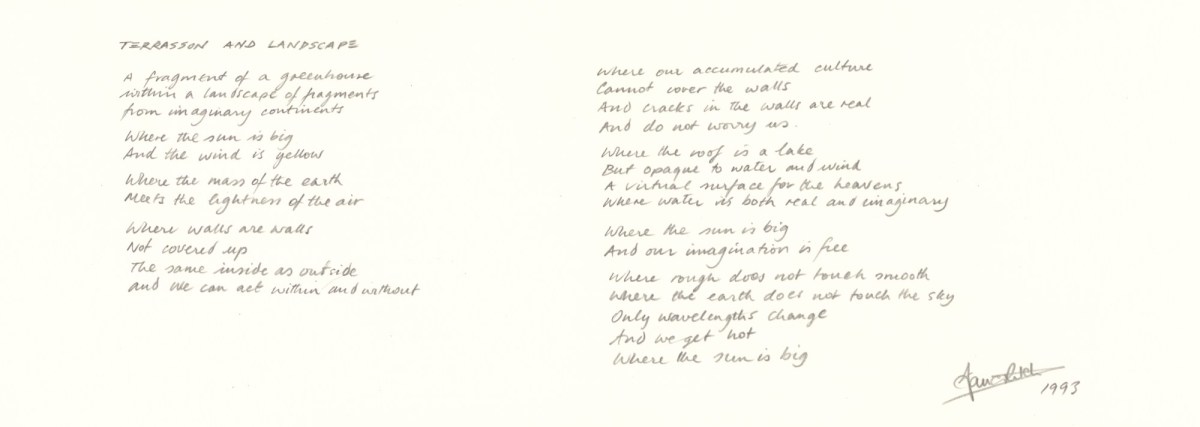 TERRASSON AND LANDSCAPE
A fragment of a greenhouse
within a landscape of fragments
from imaginary continents
Where the sun is big
And the wind is yellow
Where the mass of the earth
Meets the lightness of the air
Where walls are walls
Not covered up
The same inside as outside
and we can act within and without
Where our accumulated culture
Cannot cover the walls
And cracks in the walls are real
And do not worry us.
Where the roof is a lake
But opaque to water and wind
A virtual surface for the heavens
Where water is both real and imaginary
Where the sun is big
And our imagination is free
Where rough does not touch smooth
Where the earth does not touch the sky
Only wavelengths change
And we get hot
Where the sun is big
1993